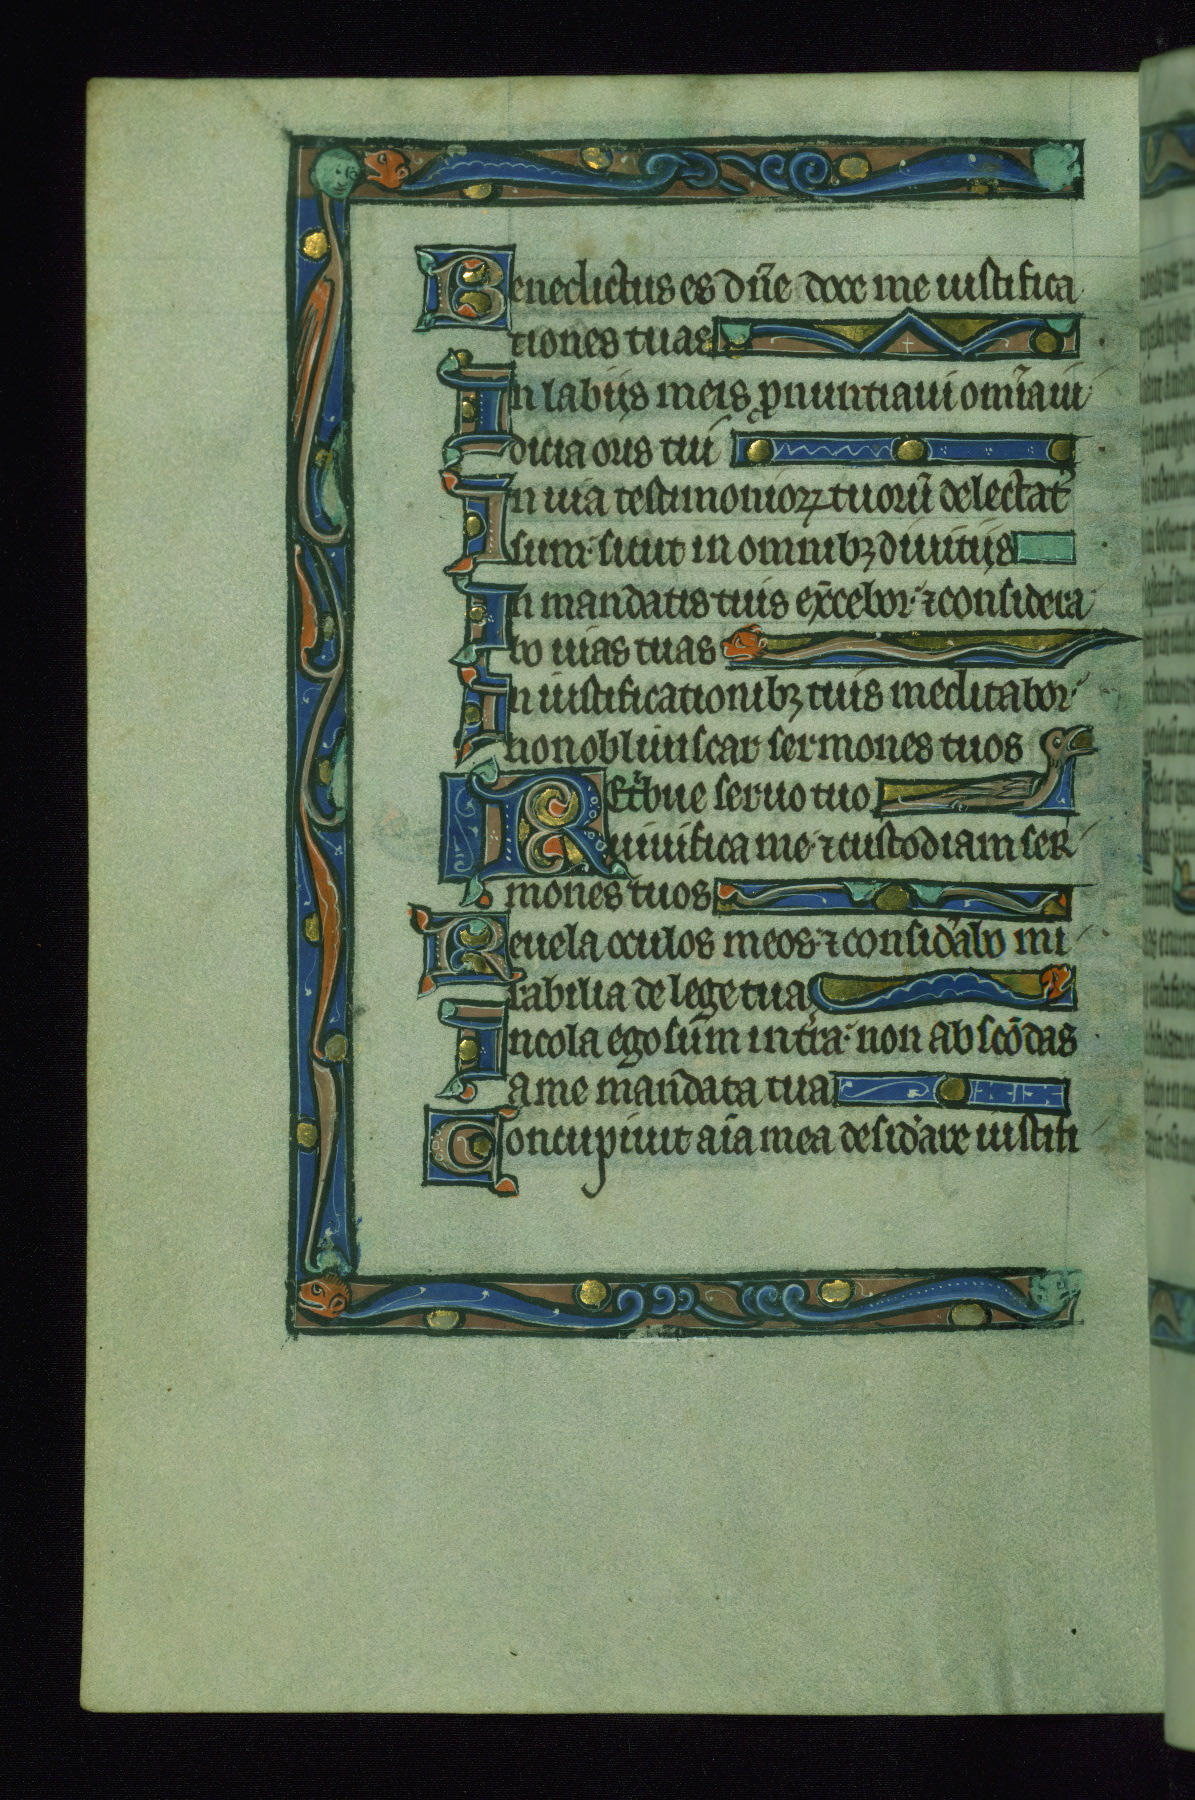 Benedictus es dn̄e doce me iustifica
tiones tuas
In labijs meis ꝓnuntiaui om̄ia iui
dicia oris tui
In uia testimonioꝝ tuorū delectat᷒
sum· sicut in omnibꝫ diuitijs
In mandatis tuis ex̄cebor· ⁊ considera
bo uias tuas
In iustificationibꝫ tuis meditabor·
non obliuiscar sermones tuos
REt͛bue seruo tuo
uiuifica me· ⁊ custodiam ser
mones tuos
Reuela oculos meos· ⁊ consid͛abo mi
rabilia de lege tua
Incola ego sum in t͛ra· non abscōdas
a me mandata tua
Concupiuit aīa mea desid͛are iustifi